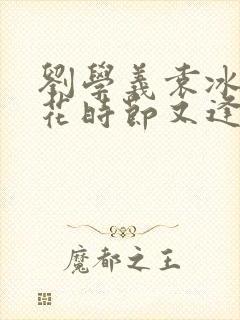 劉學義袁冰
花時節又逢
魔都之王